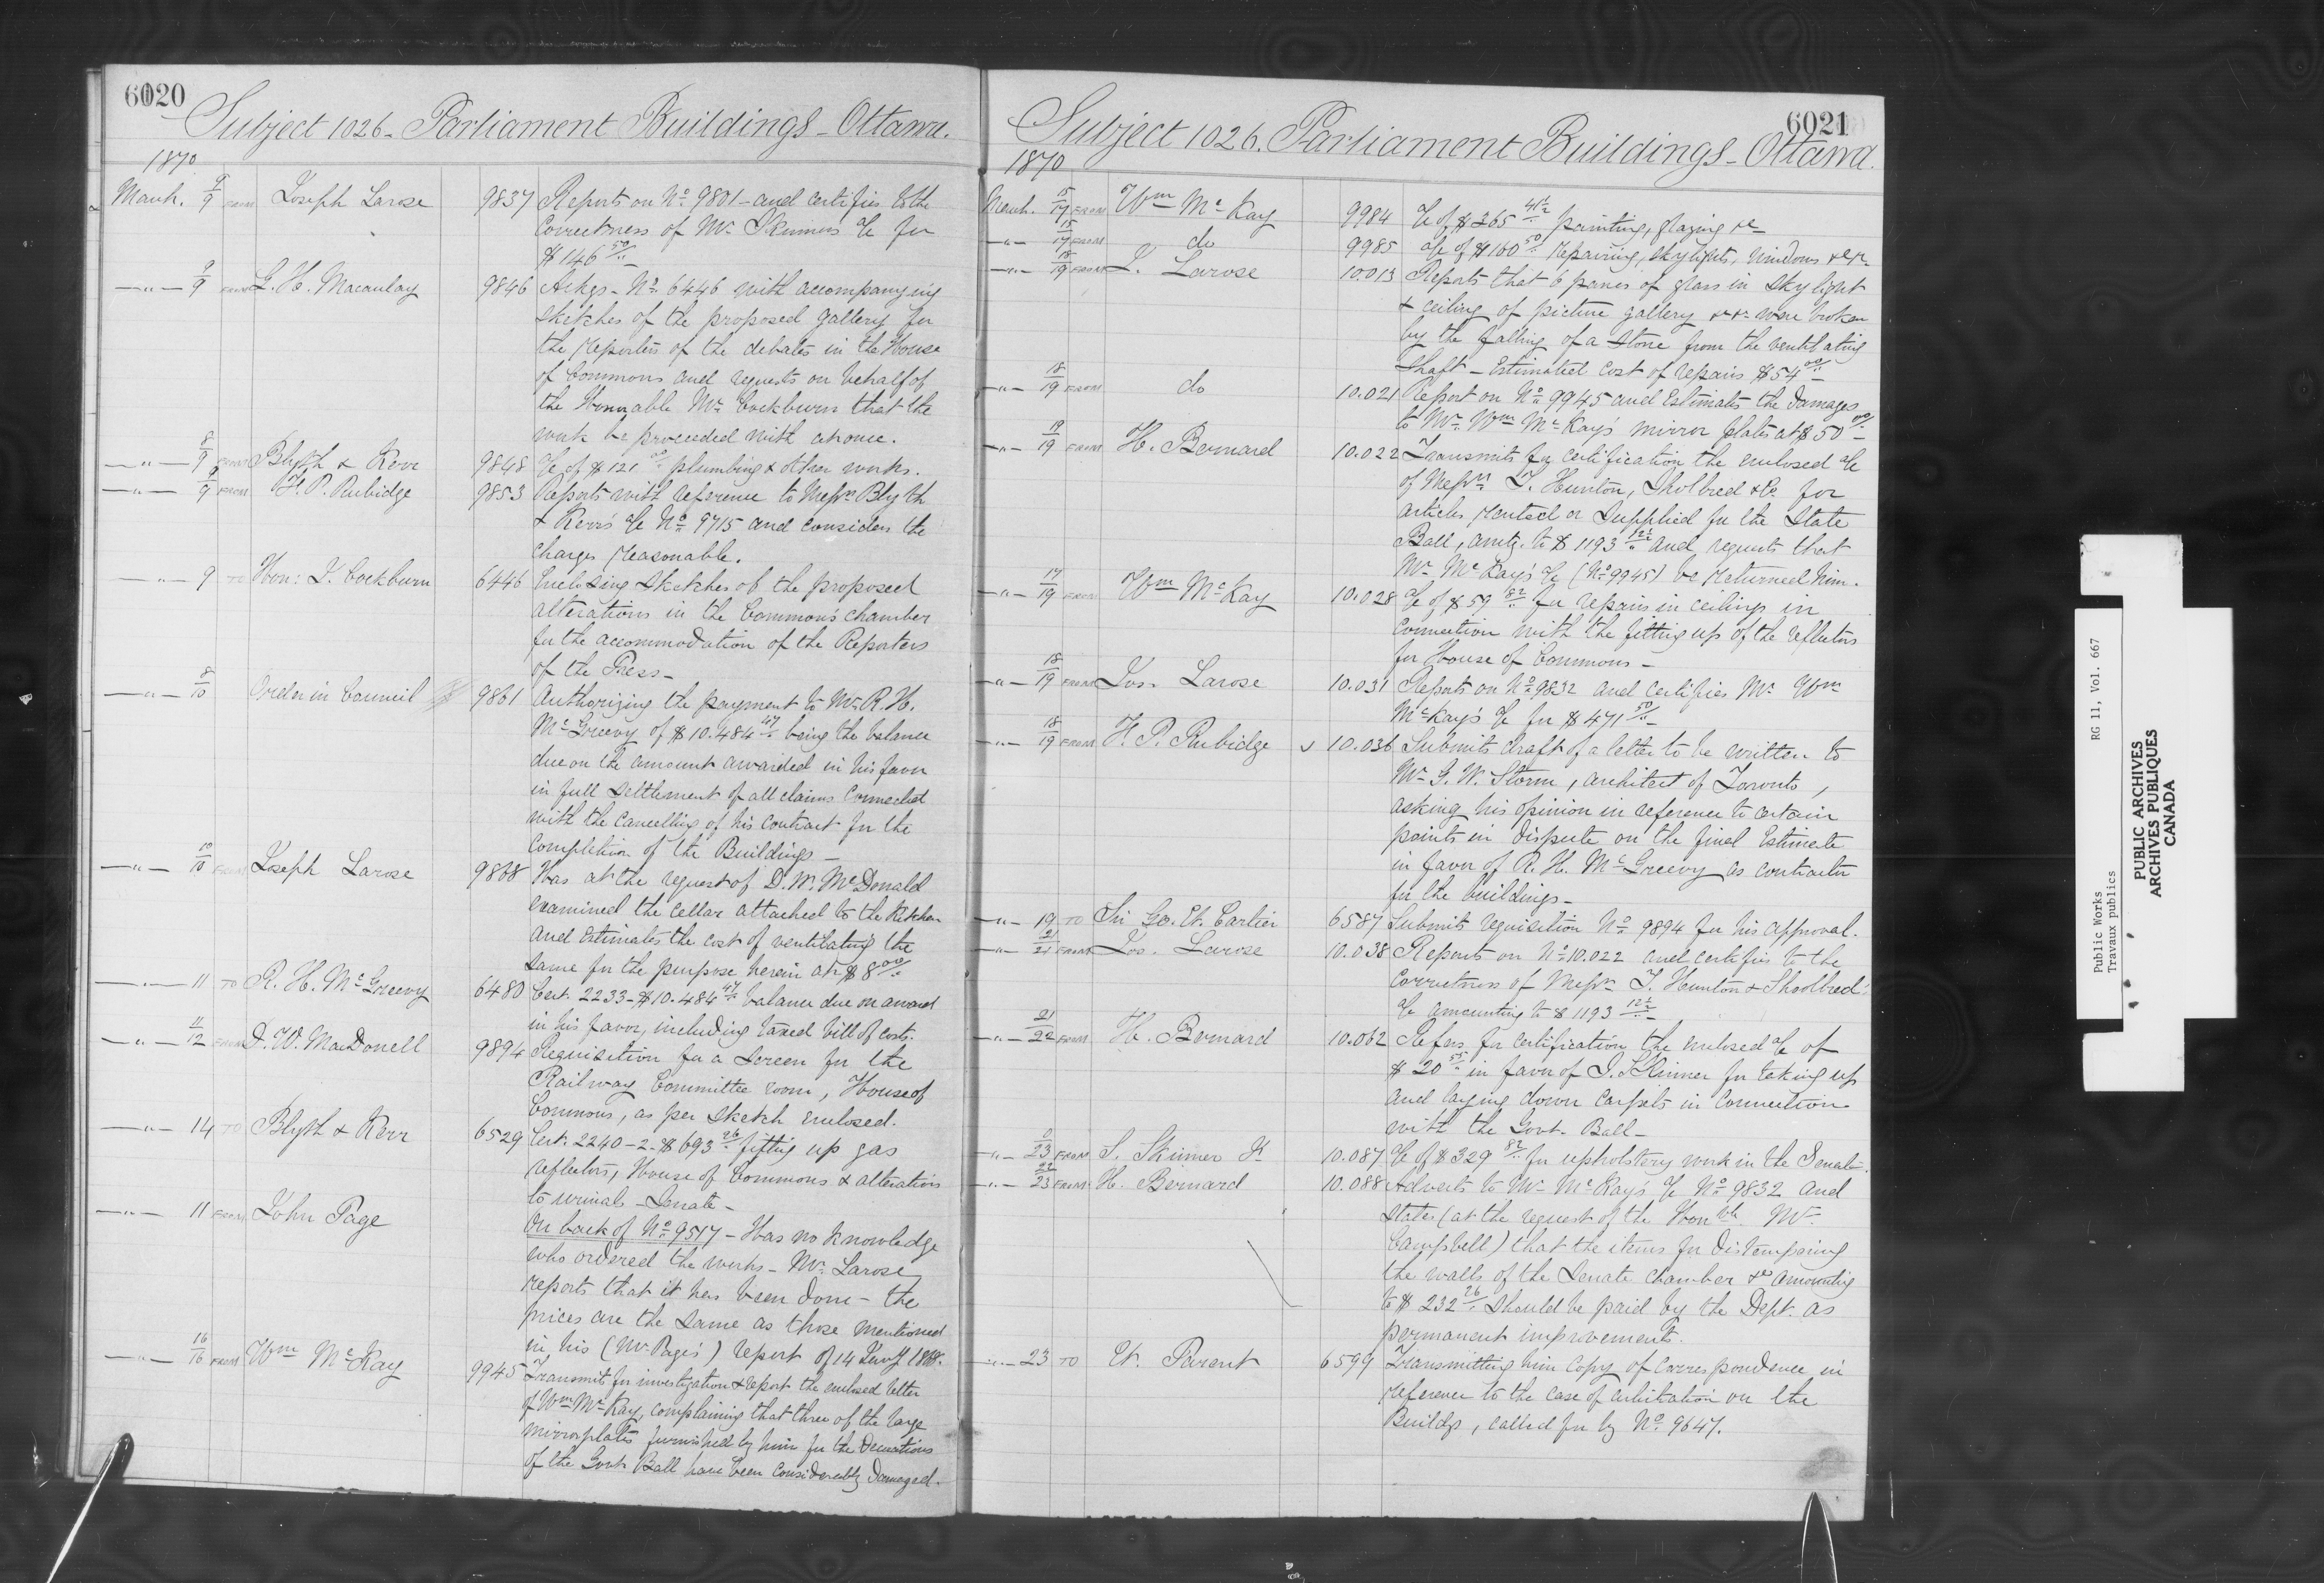 6020
Subject 1026 - Parliament Buildings - Ottawa.
1870
March. 9/9 FROM Joseph Larose 9837 Reports on No. 9801 - and certifies to the
Correctness of Mr. Skinners a/c for
$146 50/..
-"- 9/9 FROM G. H. Macaulay 9846 Ackgs - No. 6446 with accompanying
sketches of the proposed gallery for
the reporters of the debates in the House
of Commons and requests on behalf of
the Honorable Mr. Cockburn that the
work be proceeded with at once.
-"- 8/9 FROM Blyth & Kerr 9848 a/c of $121 00/.. plumbing & other works.
-"- 9/9 FROM F. P. Rubidge 9853 Reports with reference to Messrs Blyth
& Kerr's a/c No. 9715 and considers the
charges reasonable.
-"- 9 TO Hon: J. Cockburn 6446 Enclosing Sketches of the proposed
alterations in the Common's chamber
for the accommodation of the Reporters
of the Press -
-"- 8/10 Order in Council 9861 Authorizing the payment to Mr. R. H.
McGreevy of $10.484 47/.. being the balance
due on the amount awarded in his favor
in full settlement of all claims connected
with the cancelling of his contract for the
Completion of the Buildings -
-"- 10/10 FROM Joseph Larose 9868 Has at the request of D. W. McDonald
examined the cellar attached to the Kitchen
and Estimates the cost of ventilating the
same for the purpose herein at $8 00/..
-"- 11 TO R. H. McGreevy 6480 Cert. 2233 - $10.484 47/.. balance due on award
in his favor, including taxed bill of costs.
-"- 11/12 FROM D. W. MacDonell 9894 Requisition for a Screen for the
Railway Committee room, House of
Commons, as per sketch enclosed.
-"- 14 TO Blyth & Kerr 6529 Cert. 2240 - 2 - $693 26/.. fitting up gas
reflectors, House of Commons & alterations
to urinals - Senate -
-"- 11 FROM John Page On back of No. 9517 - Has no knowledge
who ordered the works - Mr. Larose
reports that it has been done - the
prices are the same as those mentioned
in his (Mr. Page's) report of 14 Jany
-"- 16/16 FROM Wm McKay 9945 Transmit for investigation & report the enclosed letter
of Wm McKay, complaining that three of the large
mirror plates furnished by him for the Decorations
of the Govt. Ball have been considerably Damaged.
6021
Subject 1026. Parliament Buildings - Ottawa.
1870
March. 15/17 FROM Wm McKay 9984 a/c of $265 41½/.. painting, glazing &c -
-"- 15/17 FROM do 9985 a/c of $160 50/.. repairing, skylights, windows &c &c -
-"- 18/19 FROM J. Larose 10.013 Reports that 6 panes of glass in sky light
& ceiling of picture gallery &c &c were broken
by the falling of a Stone from the ventilating
Shaft - Estimated cost of repairs $54 00/.. -
-"- 18/19 FROM do 10.021 Report on No. 9945 and Estimates the damages
to Mr. Wm McKay's mirror plates at $50 00/.. -
-"- 19/19 FROM H. Bernard 10.022 Transmits for certification the enclosed a/c
of Messrs J. Hunton, Sholbred & Co. for
articles rented or supplied for the State
Ball, amtg. to $1193 12½/.. and requests that
Mr. McKay's a/c (No. 9945) be returned him.
-"- 17/19 FROM Wm McKay 10.028 a/c of $59 82/.. for repairs in ceilings in
Connection with the fitting up of the reflectors
for House of Commons -
-"- 18/19 FROM Jos. Larose 10.031 Reports on No. 9832 and certifies Mr. Wm
McKay's a/c for $471 50/.. -
-"- 18/19 FROM F. P. Rubidge 10.036 Submits draft of a letter to be written to
Mr. G. W. Storm, architect of Toronto,
asking his opinion in reference to certain
points in dispute on the final Estimate
in favor of R. H. McGreevy as contractor
for the buildings -
-"- 19 TO Sir Geo. Et. Cartier 6587 Submits requisition No. 9894 for his approval.
-"- 21/21 FROM Jos. Larose 10.038 Reports on No. 10.022 and certifies to the
Correctness of Messrs J. Hunton & Shoolbred's
a/c amounting to $1193 12½/.. -
-"- 21/22 FROM H. Bernard 10.062 Refers for certification the enclosed a/c of
$20 55/.. in favor of S. Skinner for taking up
and laying down carpets in connection
with the Govt. Ball -
-"- 0/23 FROM S. Skinner 10.087 a/c of $329 82/.. for upholstery work in the Senate.
-"- 22/23 FROM H. Bernard 10.088 Adverts to Mr. McKay's a/c No. 9832 and
states (at the request of the Honble Mr.
Campbell) that the items for distemparing
the walls of the Senate chamber &c amounting
to $232 26/.. should be paid by the Dept. as
permanent improvements.
-"- 23 TO Et. Parent 6599 Transmitting him Copy of Correspondence in
reference to the case of arbitration on the
Buildgs, called for by No. 9647.
Public Works RG 11, Vol. 667
Travaux publics
PUBLIC ARCHIVES
ARCHIVES PUBLIQUES
CANADA